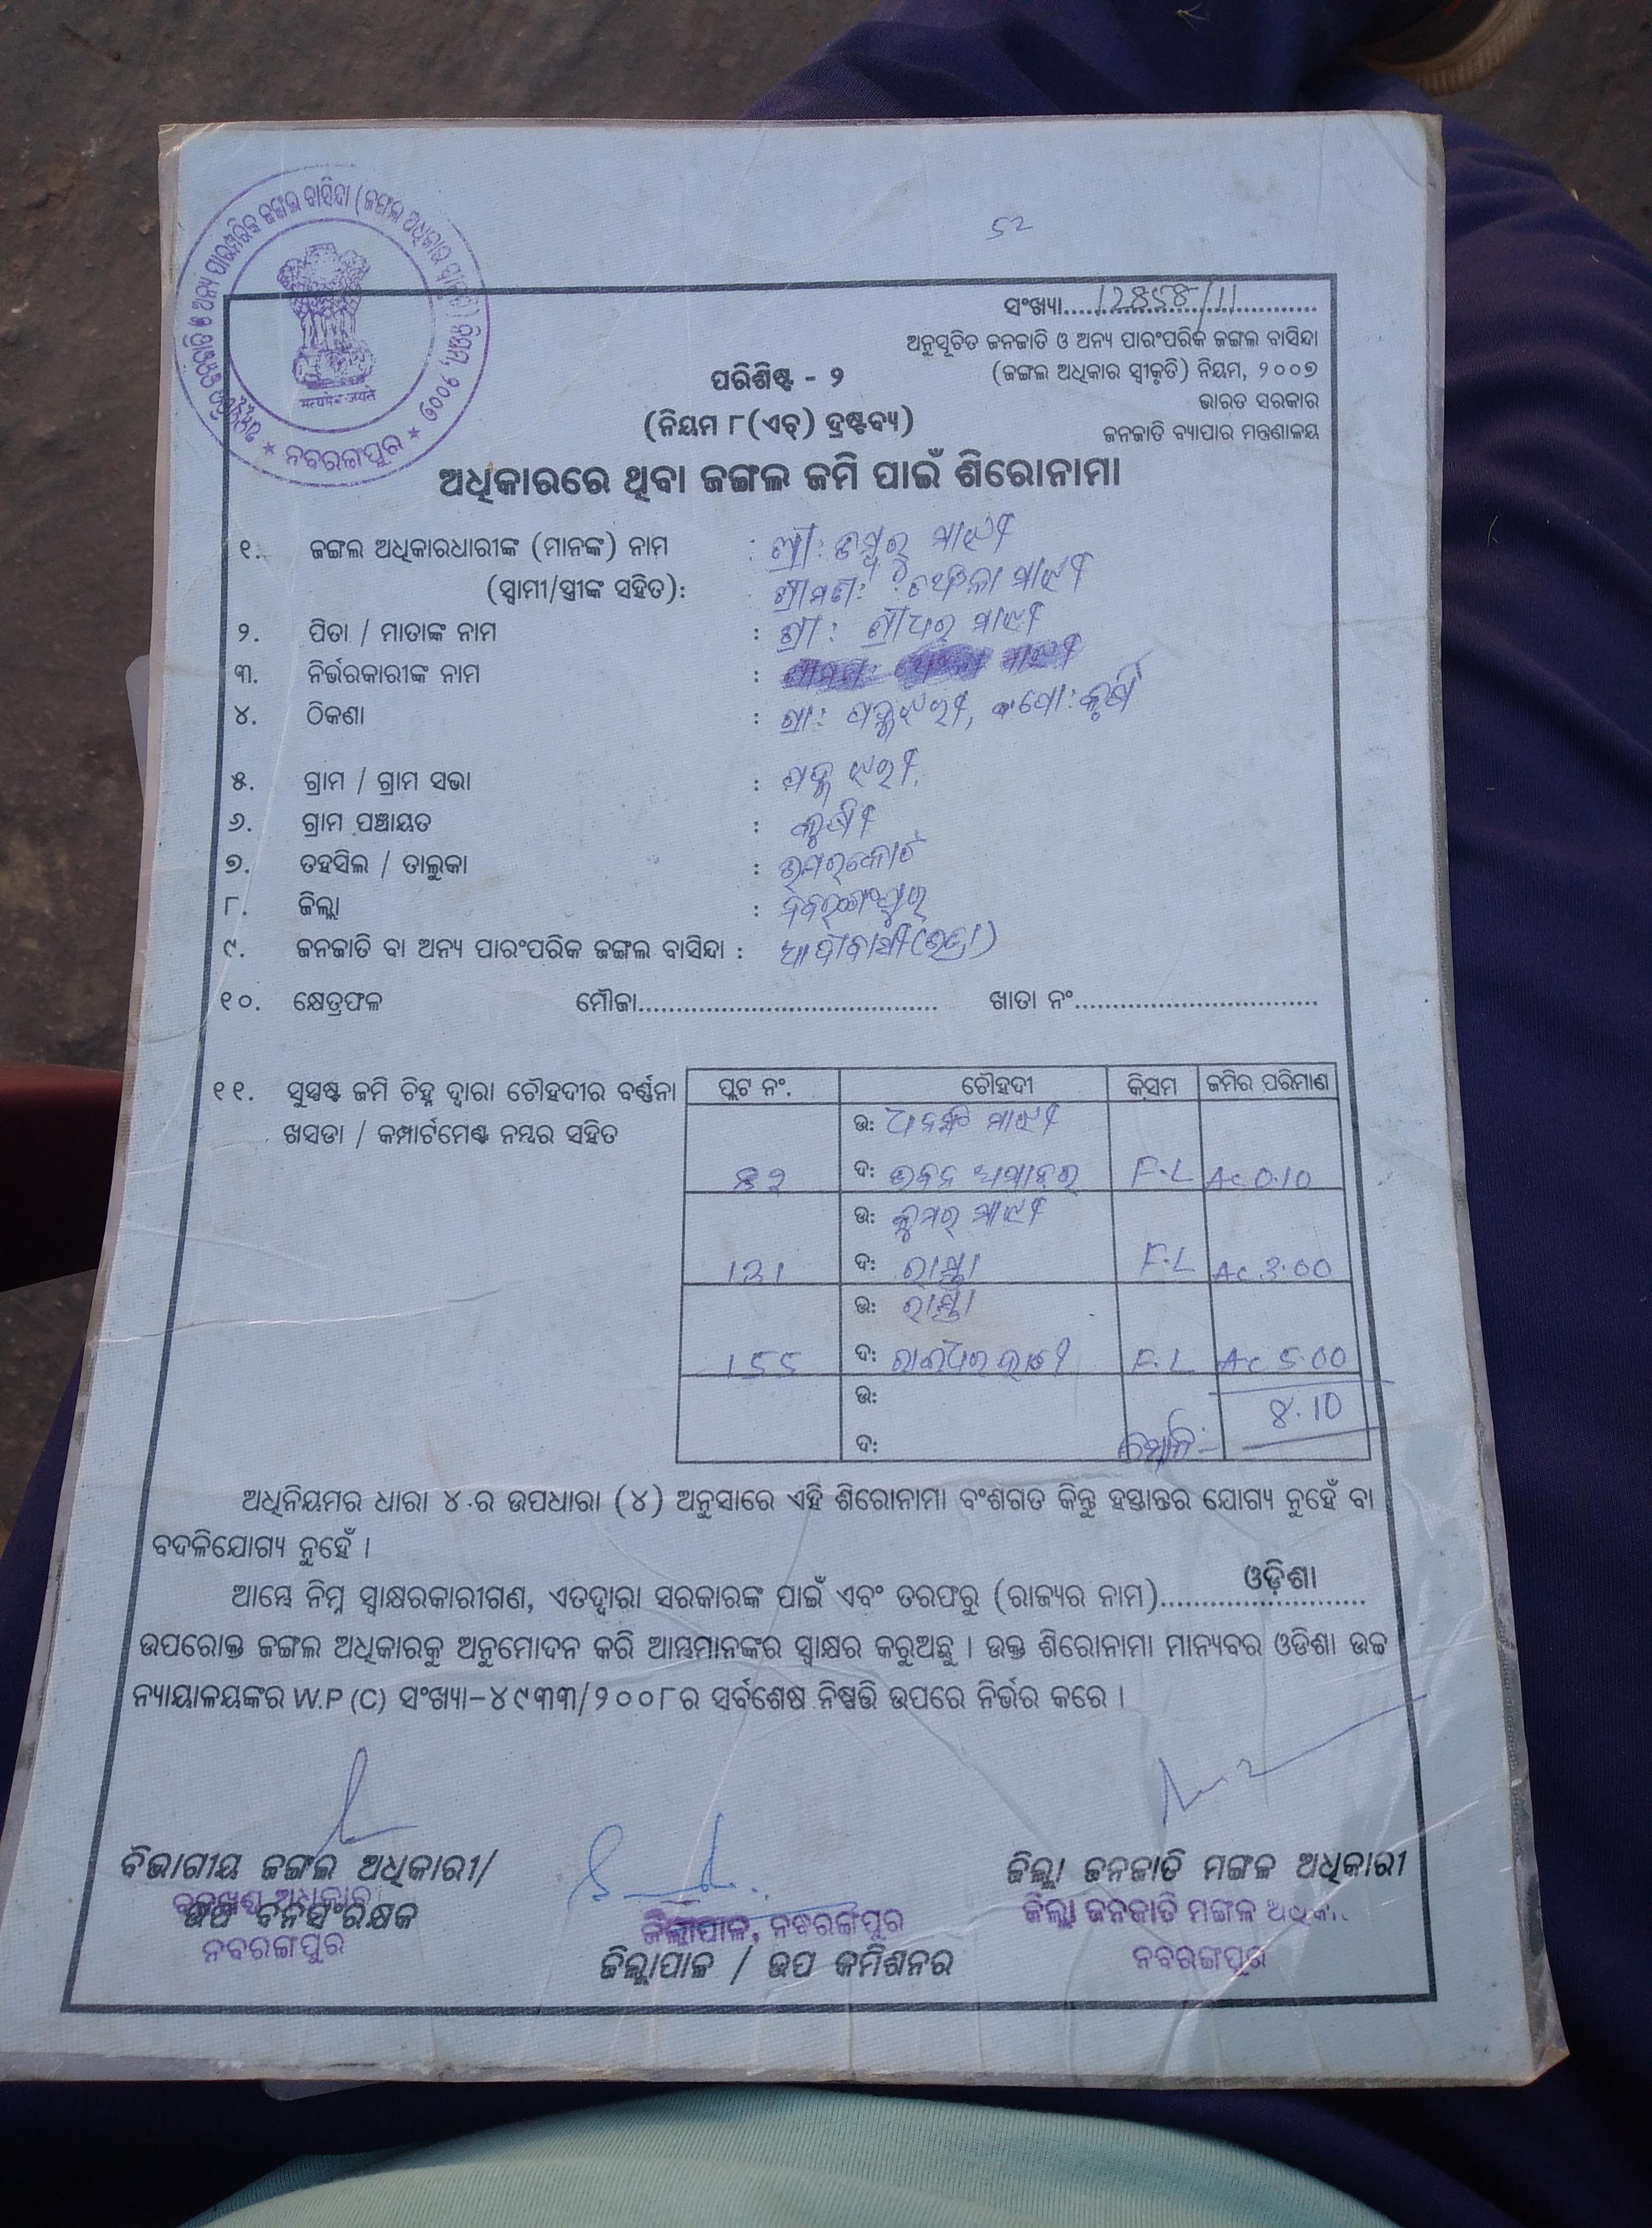 52
ସଂଖ୍ୟା..............................
ଅନୁସୂଚିତ ଜନଜାତି ଓ ଅନ୍ୟ ପାରଂପରିକ ଜଙ୍ଗଲ ବାସିନ୍ଦା
(ଜଙ୍ଗଲ ଅଧିକାର ସ୍ୱୀକୃତି) ନିୟମ, ୨୦୦୭
ଭାରତ ସରକାର
ଜନଜାତି ବ୍ୟାପାର ମନ୍ତ୍ରଣାଳୟ
ନବରଙ୍ଗପୁର
ପରିଶିଷ୍ଟ - ୨
(ନିୟମ ୮(ଏଚ୍) ଦ୍ରଷ୍ଟବ୍ୟ)
ଅଧିକାରରେ ଥିବା ଜଙ୍ଗଲ ଜମି ପାଇଁ ଶିରୋନାମା
୧. ଜଙ୍ଗଲ ଅଧିକାରଧାରୀଙ୍କ (ମାନଙ୍କ) ନାମ : ଶ୍ରୀ: ଡମ୍ବୁରୁ ମାଝୀ
(ସ୍ୱାମୀ/ସ୍ତ୍ରୀଙ୍କ ସହିତ): ଶ୍ରୀମତୀ: ମାଝୀ
୨. ପିତା / ମାତାଙ୍କ ନାମ : ଶ୍ରୀ: ଶ୍ରୀଧର ମାଝୀ
୩. ନିର୍ଭରକାରୀଙ୍କ ନାମ :
୪. ଠିକଣା : ଗ୍ରା: ପୋ:
୫. ଗ୍ରାମ / ଗ୍ରାମ ସଭା :
୬. ଗ୍ରାମ ପଞ୍ଚାୟତ :
୭. ତହସିଲ / ତାଲୁକା : ଉମରକୋଟ
୮. ଜିଲ୍ଲା : ନବରଙ୍ଗପୁର
୯. ଜନଜାତି ବା ଅନ୍ୟ ପାରଂପରିକ ଜଙ୍ଗଲ ବାସିନ୍ଦା : ଆଦୀବାସୀ
୧୦. କ୍ଷେତ୍ରଫଳ ମୌଜା........................................ ଖାତା ନଂ................................
୧୧. ସୁସ୍ପଷ୍ଟ ଜମି ଚିହ୍ନ ଦ୍ୱାରା ଚୌହଦୀର ବର୍ଣ୍ଣନା
ଖସଡା / କମ୍ପାର୍ଟମେଣ୍ଟ ନମ୍ବର ସହିତ
ପ୍ଲଟ ନଂ. ଚୌହଦୀ କିସମ ଜମିର ପରିମାଣ
ଉ: ମାଝୀ
ଦ: F.L Ac 0.10
ଉ: ମାଝୀ
131 ଦ: ରାସ୍ତା F.L Ac 3.00
ଉ: ରାସ୍ତା
155 ଦ: F.L Ac 5.00
ଉ: 8.10
ଦ:
ଅଧିନିୟମର ଧାରା ୪ ର ଉପଧାରା (୪) ଅନୁସାରେ ଏହି ଶିରୋନାମା ବଂଶଗତ କିନ୍ତୁ ହସ୍ତାନ୍ତର ଯୋଗ୍ୟ ନୁହେଁ ବା
ବଦଳିଯୋଗ୍ୟ ନୁହେଁ ।
ଆମ୍ଭେ ନିମ୍ନ ସ୍ୱାକ୍ଷରକାରୀଗଣ, ଏତଦ୍ୱାରା ସରକାରଙ୍କ ପାଇଁ ଏବଂ ତରଫରୁ (ରାଜ୍ୟର ନାମ)....ଓଡ଼ିଶା....
ଉପରୋକ୍ତ ଜଙ୍ଗଲ ଅଧିକାରକୁ ଅନୁମୋଦନ କରି ଆମ୍ଭମାନଙ୍କର ସ୍ୱାକ୍ଷର କରୁଅଛୁ । ଉକ୍ତ ଶିରୋନାମା ମାନ୍ୟବର ଓଡିଶା ଉଚ୍ଚ
ନ୍ୟାୟାଳୟଙ୍କର W.P (C) ସଂଖ୍ୟା-୪୯୩୩/୨୦୦୮ର ସର୍ବଶେଷ ନିଷ୍ପତ୍ତି ଉପରେ ନିର୍ଭର କରେ ।
ବିଭାଗୀୟ ଜଙ୍ଗଲ ଅଧିକାରୀ/
ଉପ ବନସଂରକ୍ଷକ
ନବରଙ୍ଗପୁର
ଜିଲ୍ଲାପାଳ, ନବରଙ୍ଗପୁର
ଜିଲ୍ଲାପାଳ / ଉପ କମିଶନର
ଜିଲ୍ଲା ଜନଜାତି ମଙ୍ଗଳ ଅଧିକାରୀ
ଜିଲ୍ଲା ଜନଜାତି ମଙ୍ଗଳ
ନବରଙ୍ଗପୁର